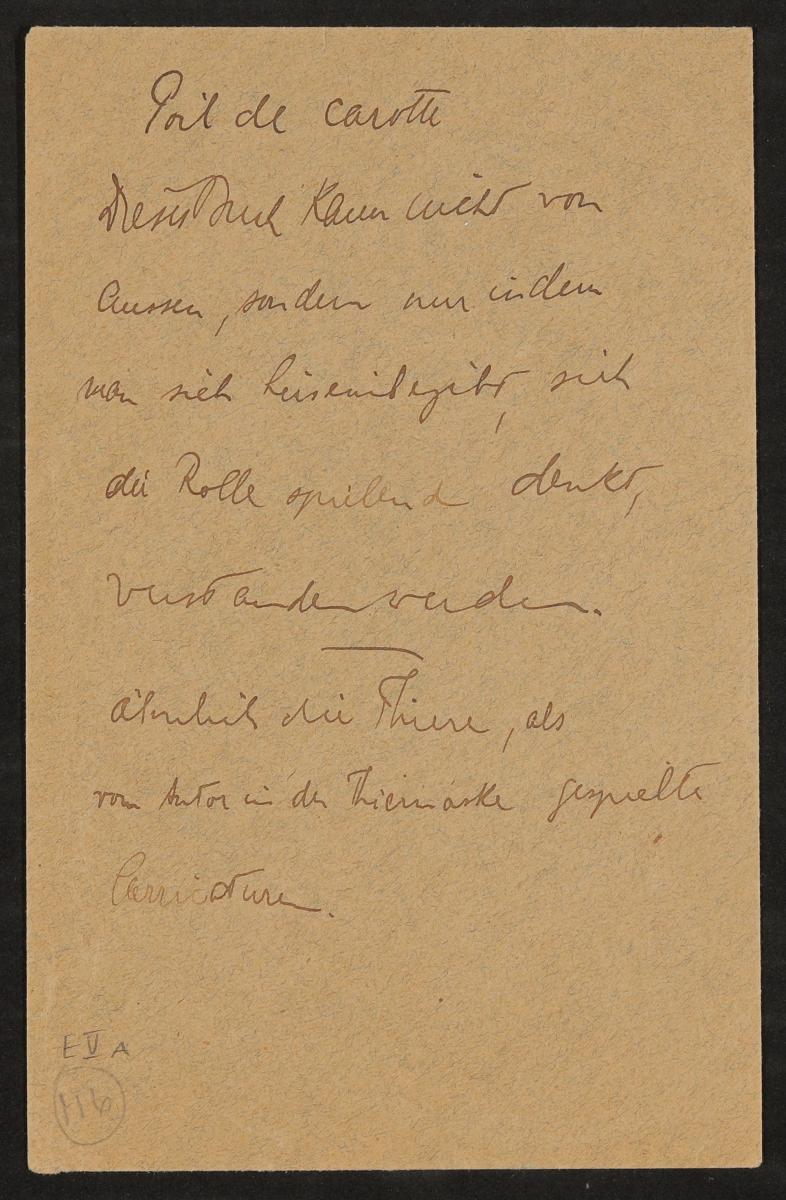 Poil de carotte
Dieses Buch kann nicht von
Aussen, sondern nur indem
man sich hineinbegibt, sich
die Rolle spielend denkt,
verstanden werden.
ähnlich die Thiere, als
vom Autor in der Thiermaske gespielte
Carricaturen.
E V A
116